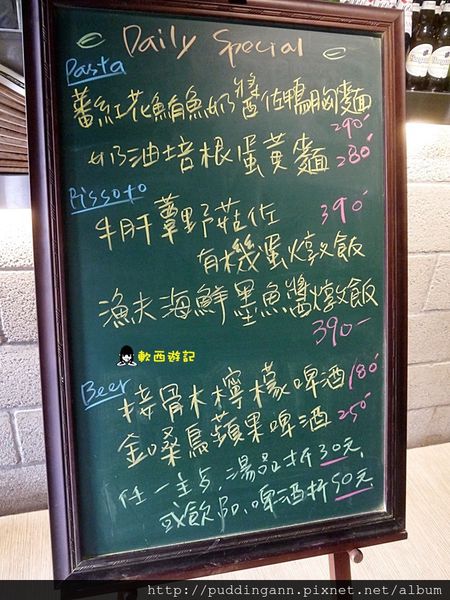 Daily Special
Pasta
蕃紅花鮪魚奶醬佐鴨胸麵
290
奶油培根蛋黃麵 280
Rissoto
牛肝蕈野菇佐 390
有機蛋燉飯
漁夫海鮮墨魚醬燉飯
390-
軟西遊記
Beer
接骨木檸檬啤酒 180
金嗓鳥蘋果啤酒 250
任一主点,湯品折30元
或飲品、啤酒折50元
http://puddingann.pixnet.net/album